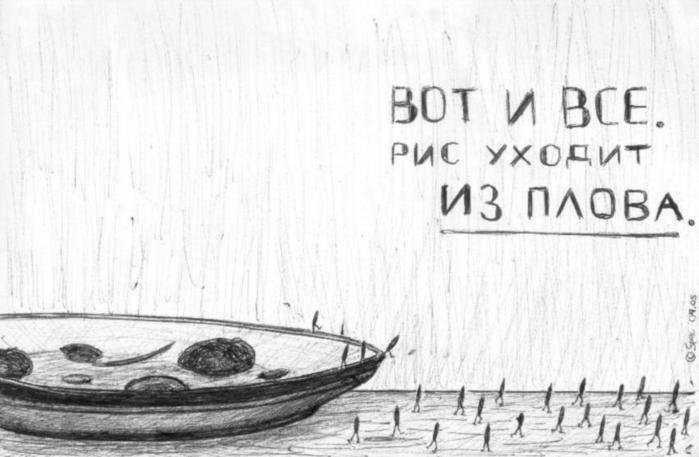 ВОТ И ВСЕ.
РИС УХОДИТ
ИЗ ПЛОВА.